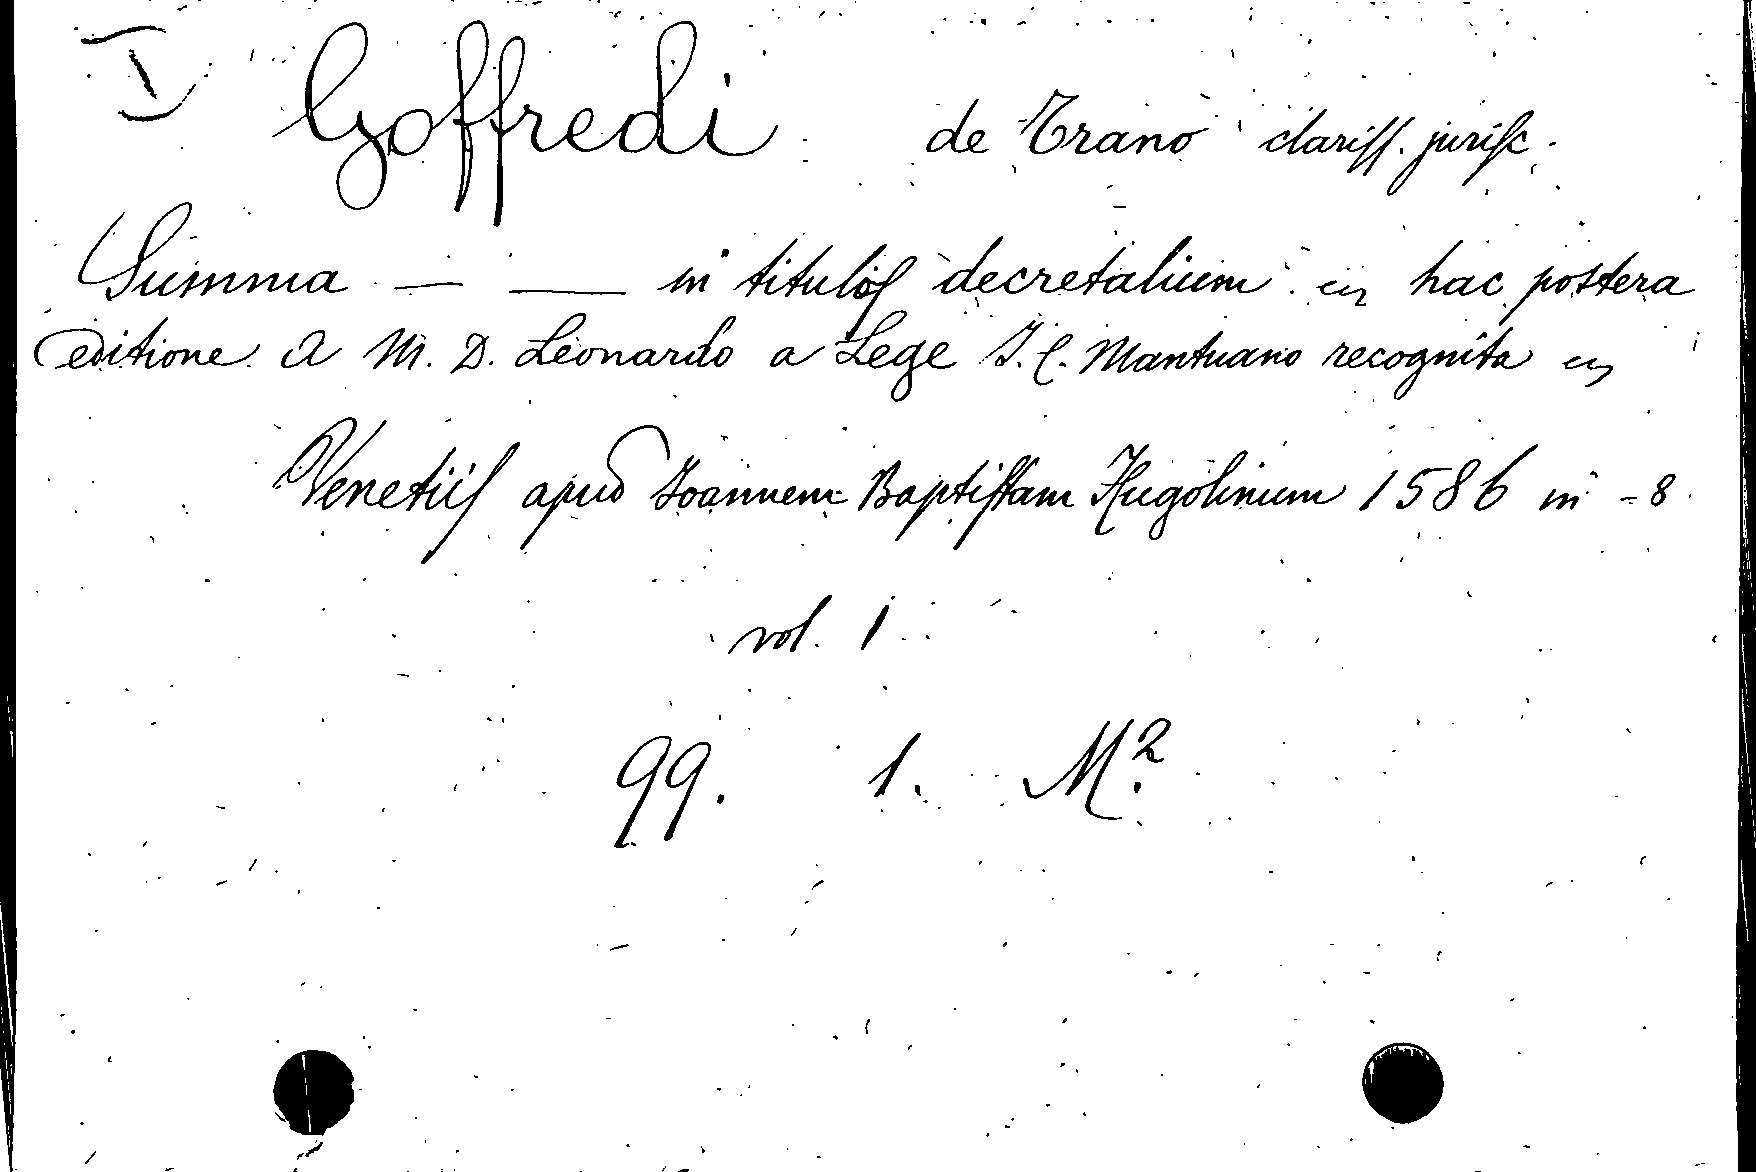 I Goffredi de Trano clariss. jurisc.
Summa — — in titulos decretalium en hac postera
editione a M. D. Leonardo a Lege J. C. Mantuano recognita en
Venetiis apud Joannem Baptistam Hugolinum 1586 in -8
vol. 1
99. 1. M.²